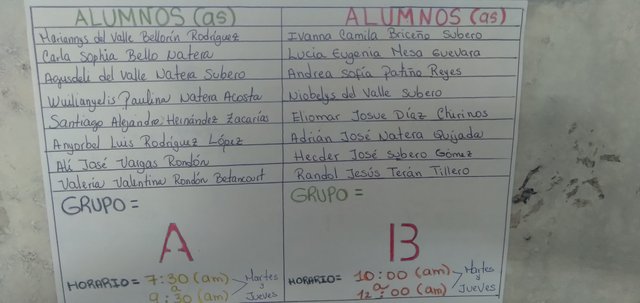 ALUMNOS (as)
Mariannys del Valle Bellorín Rodríguez
Carla Sophia Bello Natera
Agusdeli del Valle Natera Subero
Wuilianyelis Paulina Natera Acosta
Santiago Alejandro Hernández Zacarías
Anyorbel Luis Rodríguez López
Alí José Vargas Rondón
Valeria Valentina Rondón Betancourt
GRUPO =
A
HORARIO = 7:30 (am)
a
9:30 (am)
Martes
y
Jueves
ALUMNOS (as)
Ivanna Camila Briceño Subero
Lucia Eugenia Mesa Guevara
Andrea Sofía Patiño Reyes
Niobelys del Valle Subero
Eliomar Josue Díaz Chirinos
Adrián José Natera Quijada
Hecder José Subero Gómez
Randol Jesús Terán Tillero
GRUPO =
B
HORARIO = 10:00 (am)
a
12:00 (am)
Martes
y
Jueves